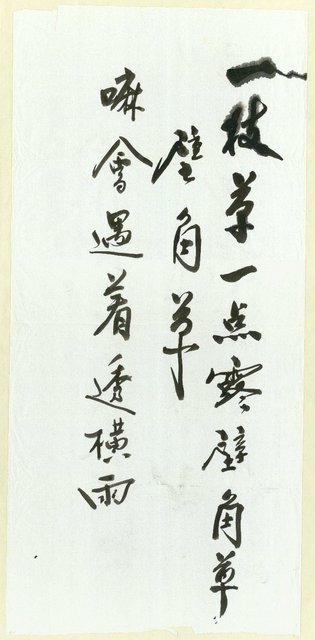 一枝草一点露壁角草
壁角草
嘛會遇着透橫雨